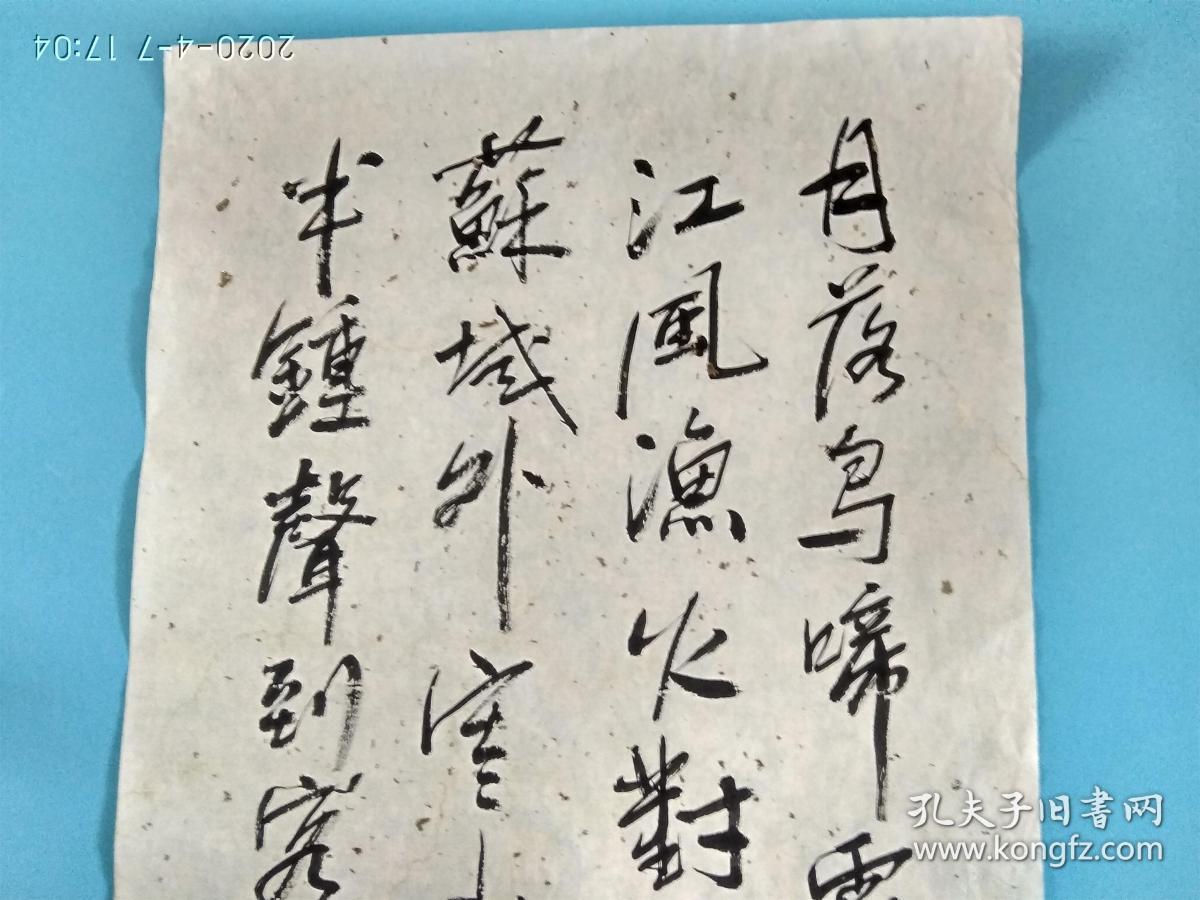 月落烏啼
江風漁火對
蘇城外寒
半鍾聲到客
2020-4-7 17:04
孔夫子旧书网
www.kongfz.com